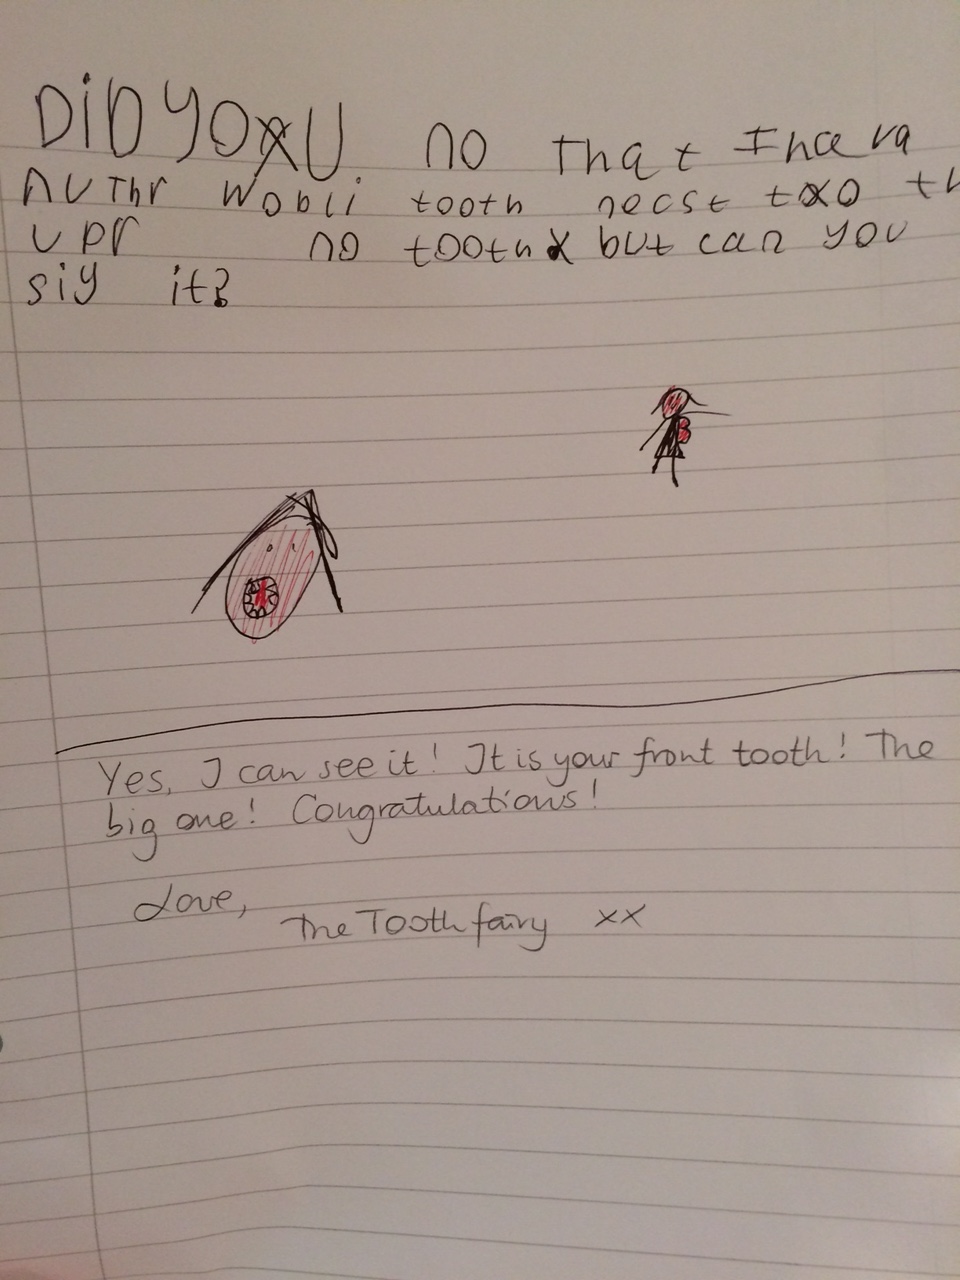 DiD YOU no That I haeva
AUThr Wobli tooth necst to th
upr no tooth but can you
siy it?
Yes, I can see it! It is your front tooth! The
big one! Congratulations!
Love,
The Tooth fairy xx